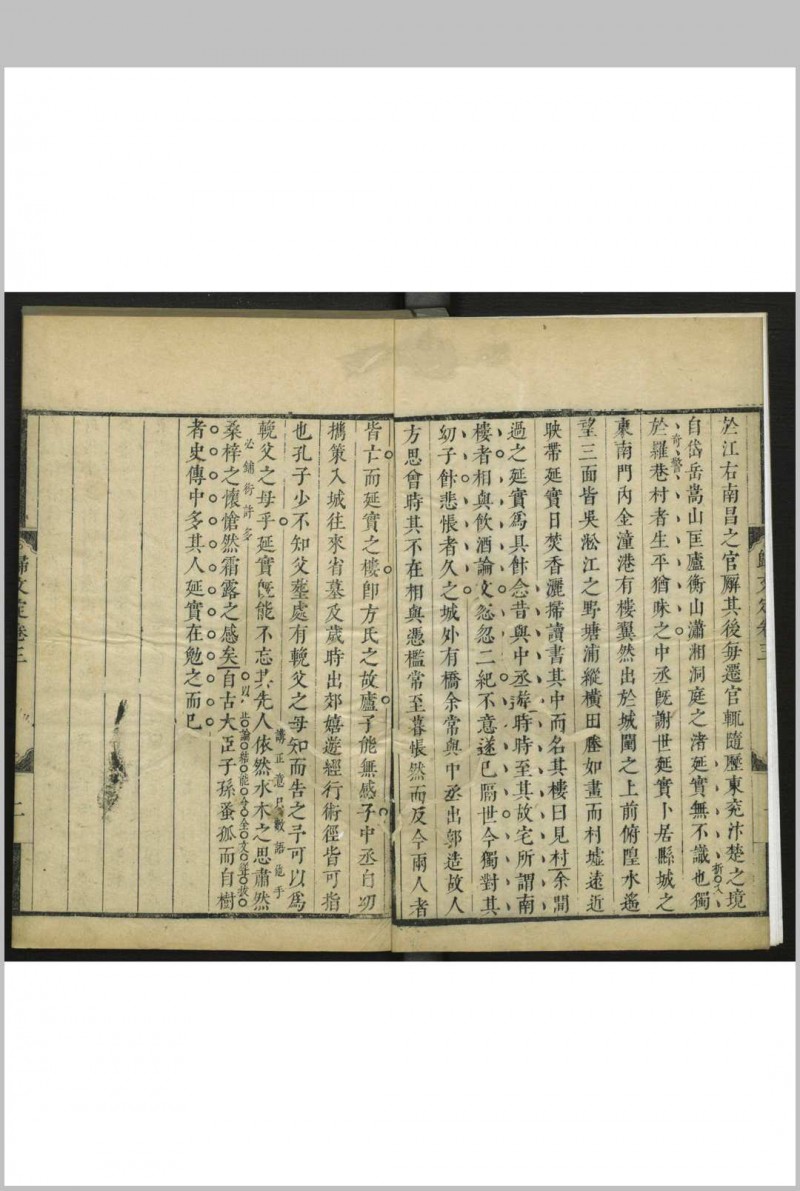 於江右南昌之官廨其後每遷官輒隨歷東兖汴楚之境
自岱岳嵩山匡廬衡山瀟湘洞庭之渚延實無不識也獨
於羅巷村者生平猶昧之中丞既謝世延實卜居縣城之
東南門內金潼港有樓翼然出於城闉之上前俯隍水遙
望三面皆吳淞江之野塘浦縱橫田塍如畫而村墟遠近
映帶延實日焚香灑掃讀書其中而名其樓曰見村余間
過之延實爲具飰念昔與中丞遊時時至其故宅所謂南
樓者相與飲酒論文忽忽二紀不意遂已隔世今獨對其
幼子飰悲悵者久之城外有橋余常與中丞出郭造故人
方思曾時其不在相與憑檻常至暮悵然而反今兩人者
皆亡而延實之樓卽方氏之故廬予能無感乎中丞自幼
攜策入城往來省墓及歲時出郊嬉遊經行術徑皆可指
也孔子少不知父墓處有輓父之母知而告之予可以爲
輓父之母乎延實既能不忘其先人依然水木之思肅然
桑梓之懷愴然霜露之感矣自古大臣子孫蚤孤而自樹
者史傳中多其人延實在勉之而已
歸文定卷三
二